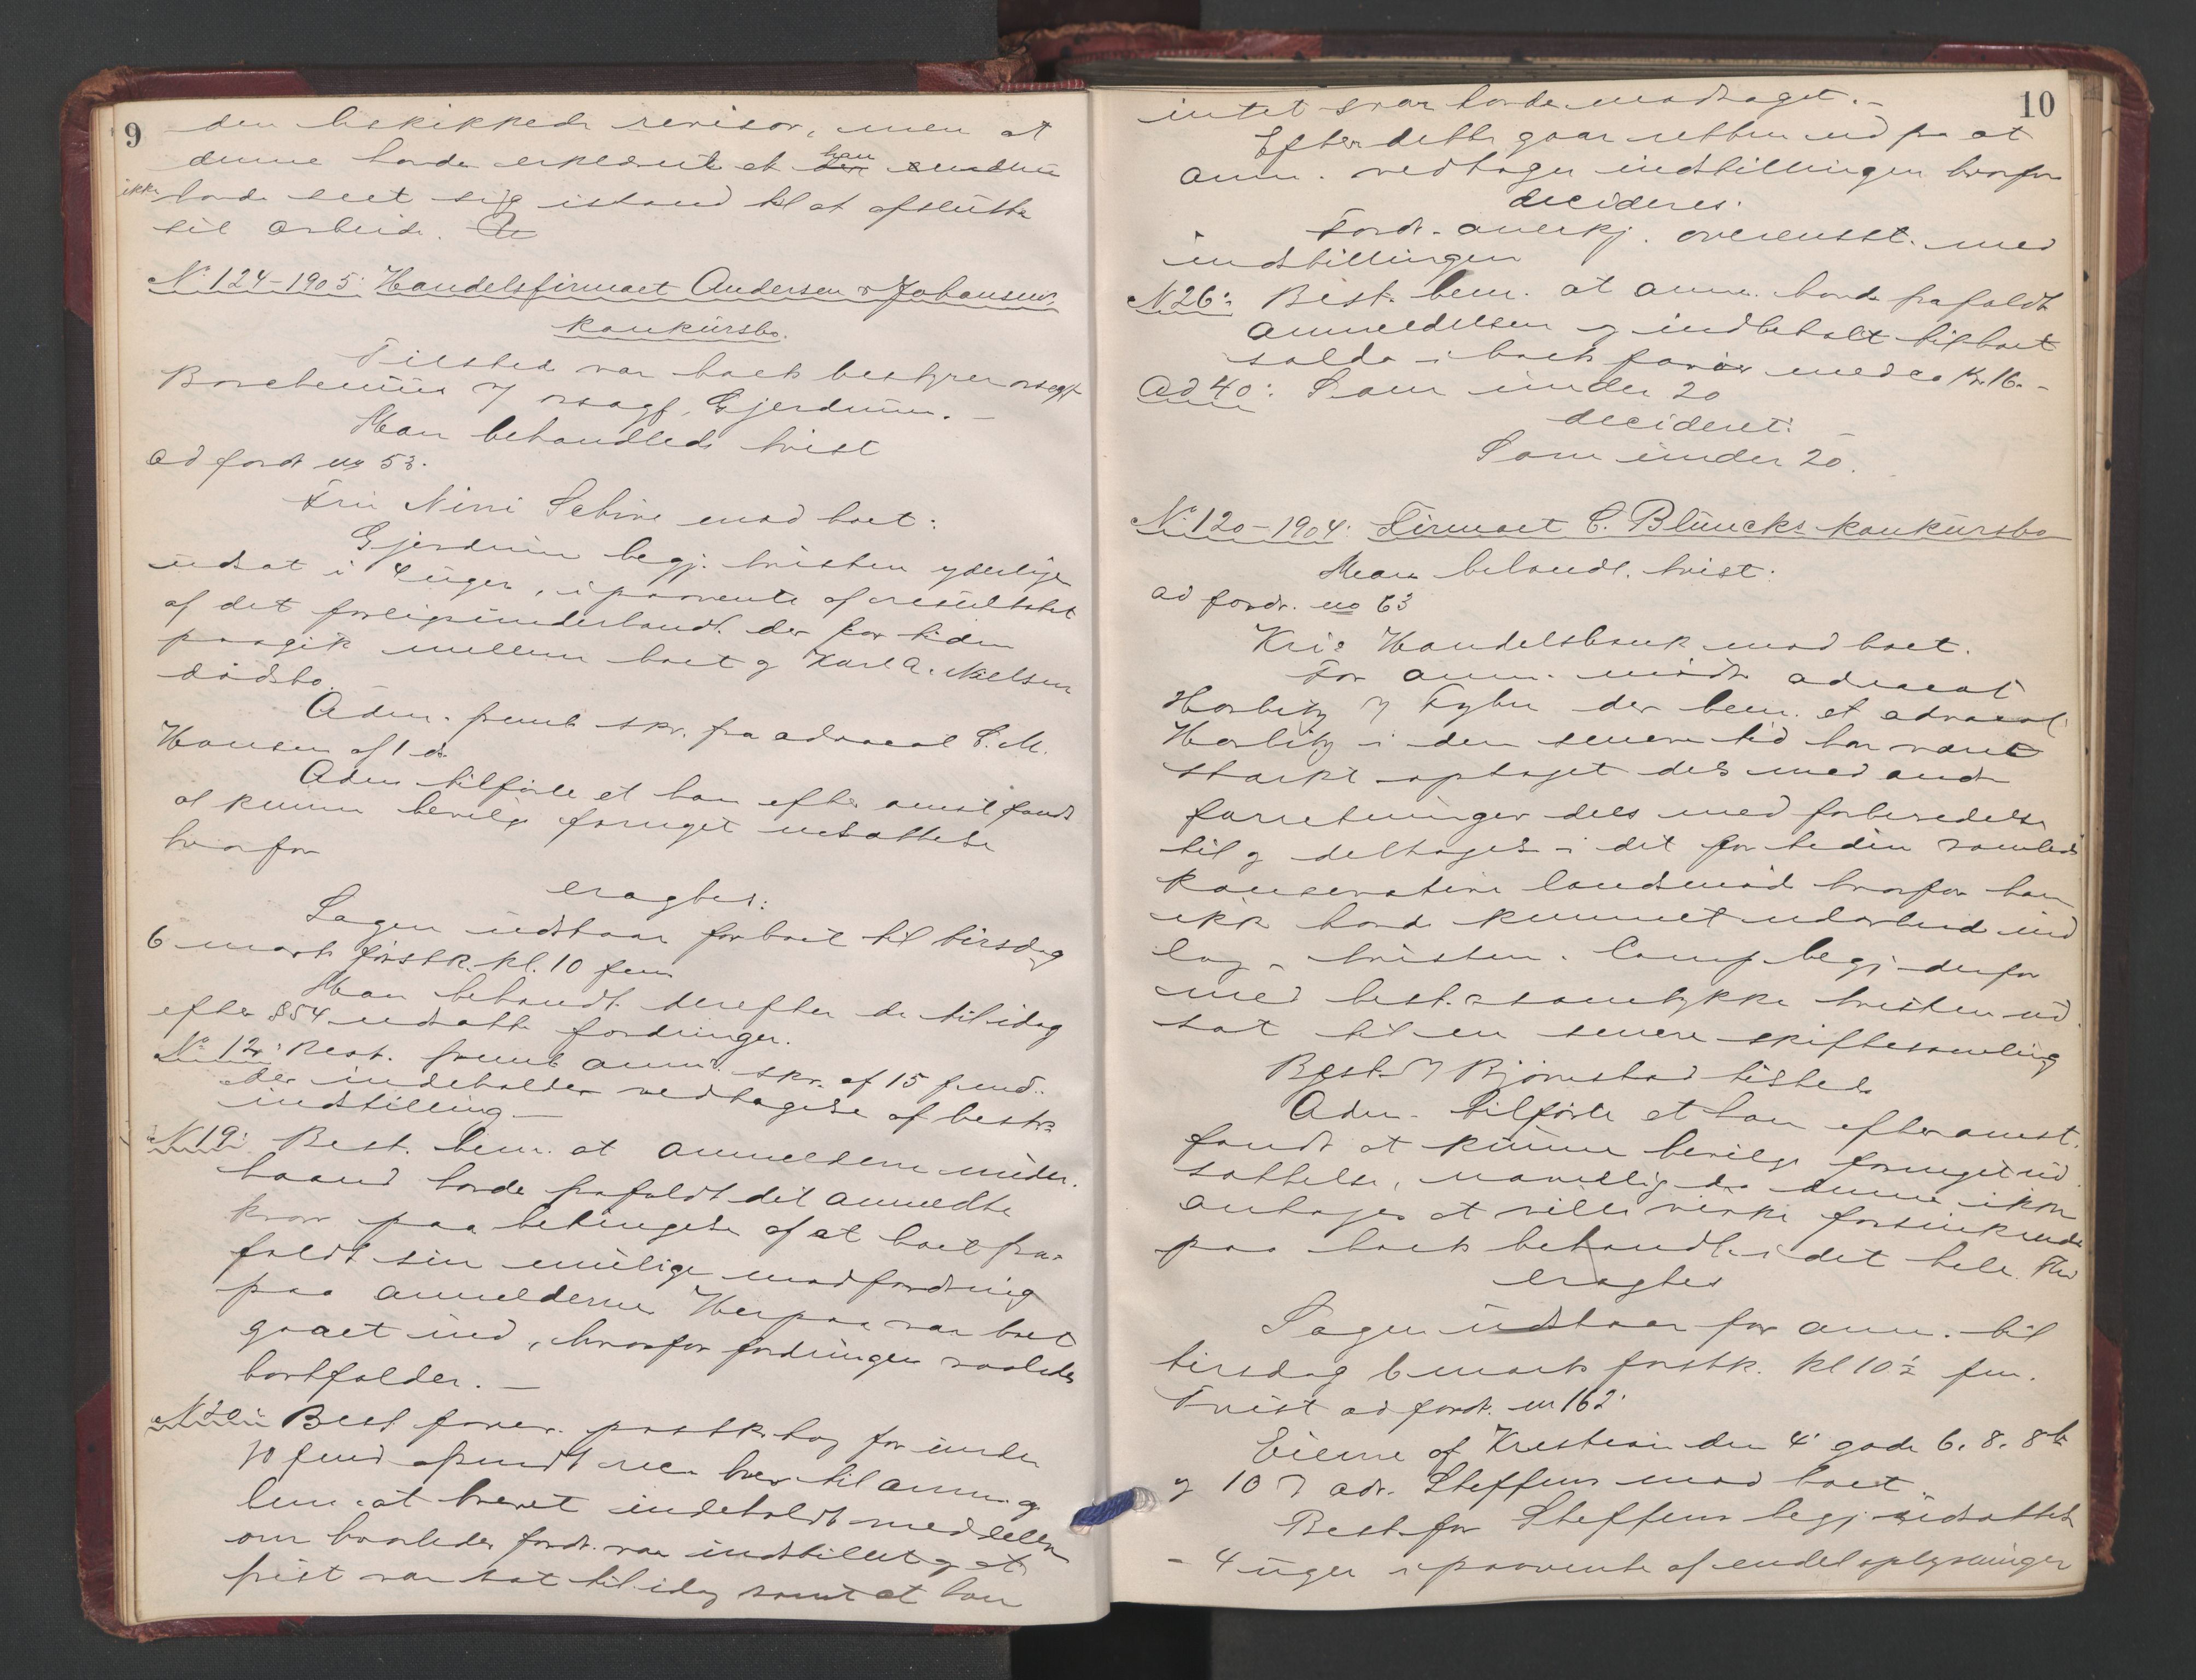 9
den beskikkede revisor, men at
denne havde erklæret at han endnu
ikke havde seet sig istand til at afslutte
sit arbeide.
N: 124-1905: Handelsfirmaet Andersen & Johansens
konkursbo.
Tilstede var boets bestyrer osagf.
Borchenius v/ osagf. Gjerdrum. –
Man behandlede tvist
ad fordr. no 53.
Fru Nini Schive mod boet:
Gjerdrum begj. tvisten yderlige
udsat i 4 uger, i paavente af resultatet
af det forligsunderhandl. der for tiden
paagik mellem boet og Karl A. Nielsens
dødsbo.
Adm. freml. skr. fra advocat C. M.
Hansen af 1 ds.
Adm. tilførte at han efter omst. fandt
at kunne bevilge forlanget udsættelse
hvorfor
eragtes:
Sagen udstaar for boet til tirsdag
6 marts førstk. kl. 10 fm.
Man behandl. derefter de til idag
efter § 54 udsatte fordringer.
No 12: Best. freml. anm. skr. af 15 f.md.
der indeholder vedtagelse af bestr.
indstilling –
N 19: Best. bem. at anmelderne under-
haand havde frafaldt det anmeldte
krav paa betingelse af at boet fra-
faldt sin mulige modfordring
paa anmelderne. Herpaa var boet
gaaet ind, hvorfor fordringen saaledes
bortfalder. –
N 20: Best. forev. postkvtg. for under
10 f.md. afsendt rec. brev til anm. og
bem. at brevet indeholdt meddelelse
om hvorledes fordr. var indstillet og at
frist var sat til idag samt at han
10
intet svar havde modtaget. –
Efter dette gaar retten ud fra at
anm. vedtager indstillingen hvorfor
decideres:
Fordr. anerkj. overensst. med
indstillingen
N 26: Best. bem. at anm. havde frafaldt
anmeldelsen og indbetalt til boet
saldo i boets favør med ca Kr. 16. –
Ad 40: Som under 20
decideret:
Som under 20.
N: 120-1904: Firmaet C. Blüncks konkursbo
Man behandl. tvist:
ad fordr. no 63
Kr.a Handelsbank mod boet.
For anm. mødte advocat
Harbitz v/ Sybu der bem. at advocat
Harbitz i den senere tid har været
stærkt optaget dels med andre
forretninger dels med forberedelse
til og deltagelse i det for tiden samlede
konservative landsmøde hvorfor han
ikke havde kunnet udarbeide ind
læg i tvisten. Comp. begj. derfor
med best.s samtykke tvisten ud
sat til en senere skiftesamling
Best. v/ Bjørnstad tilstede
Adm. tilførte at han efter omst.
fandt at kunne bevilge forlanget ud
sættelse, navnlig da denne ikke
antages at ville virke forsinkende
paa boets behandl. i det hele. Thi
eragtes
Sagen udstaar for anm. til
tirsdag 6 marts førstk. kl 10½ fm.
Tvist ad fordr. no 162:
Eierne af Kristian den 4' gade 6. 8. 8b
og 10 v/ adv. Steffens mod boet.
Best. for Steffens begj. udsættelse
i 4 uger i paavente af endel oplysninger